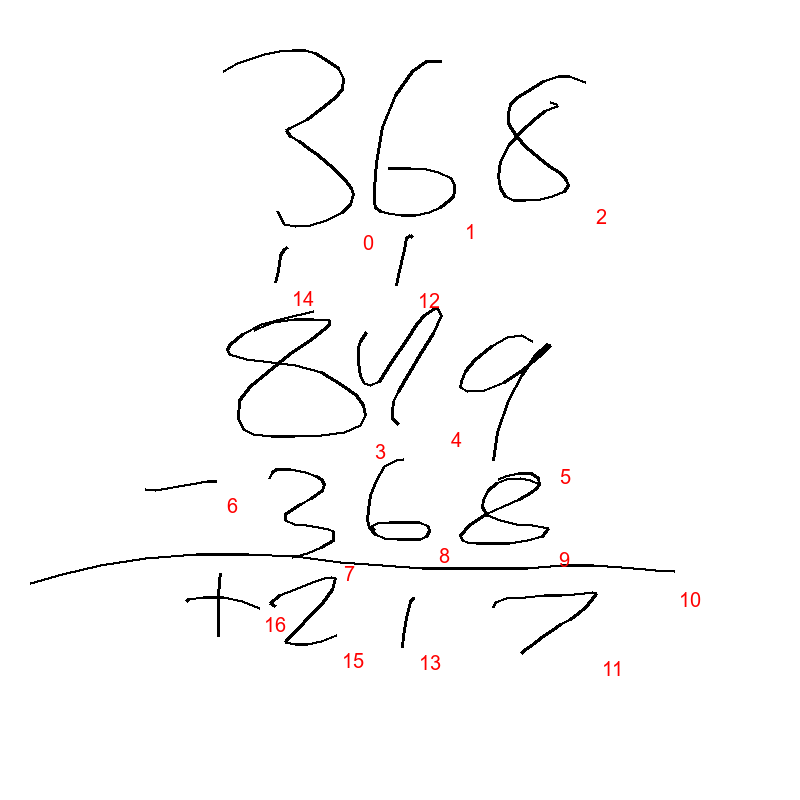 368
0 1 2
1 1
14 12
849
3 4 5
- 368
6 7 8 9
10
+217
16 15 13 11